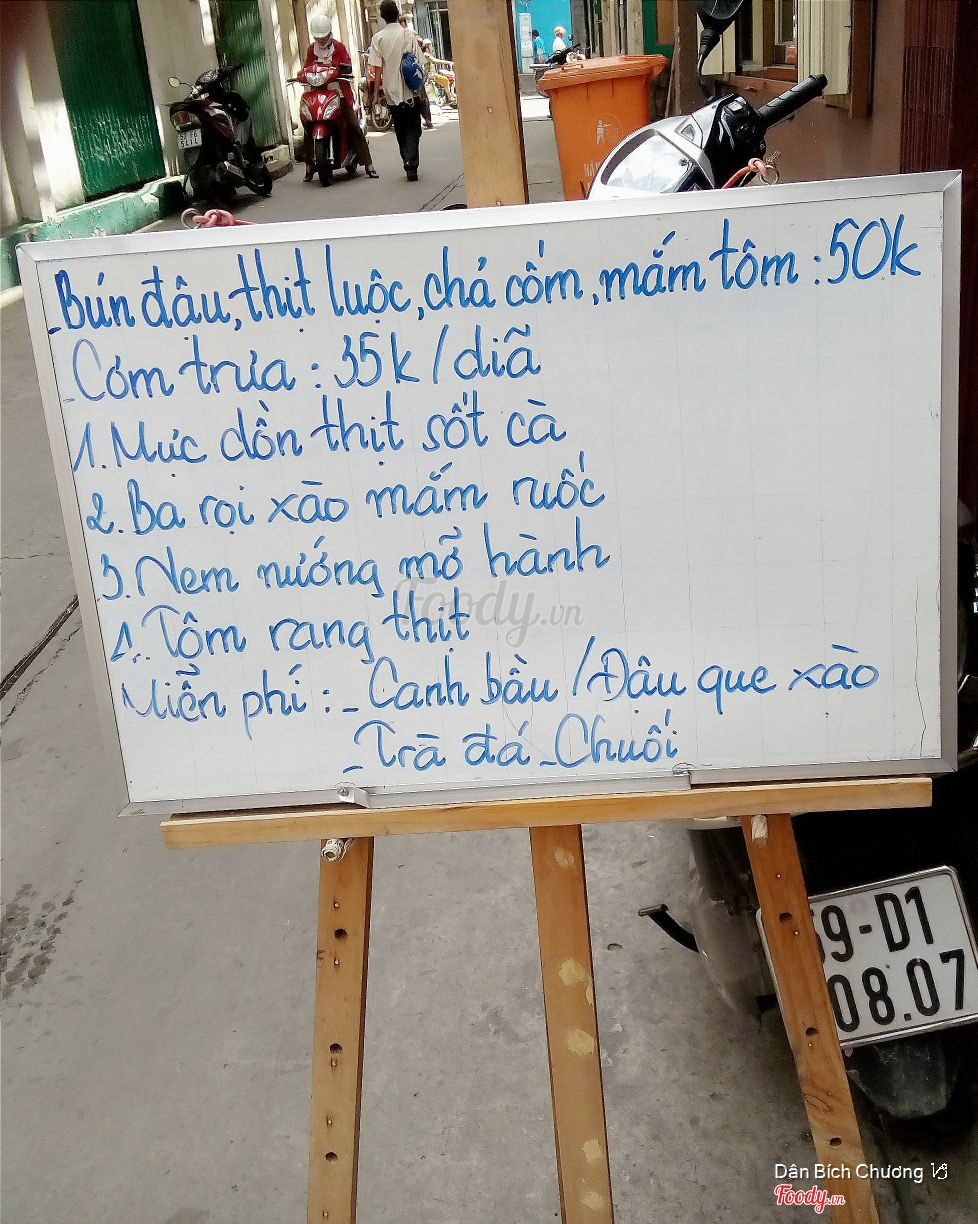 - Bún đậu, thịt luộc, chả cốm, mắm tôm : 50k
- Cơm trưa : 35k / diã
1. Mực dồn thịt sốt cà
2. Ba rọi xào mắm ruốc
3. Nem nướng mỡ hành
1. Tôm rang thịt
Miễn phí : - Canh bầu / Đậu que xào
- Trà đá - Chuối
Foody.vn
59-D1
08.07
Dân Bích Chương
Foody.vn